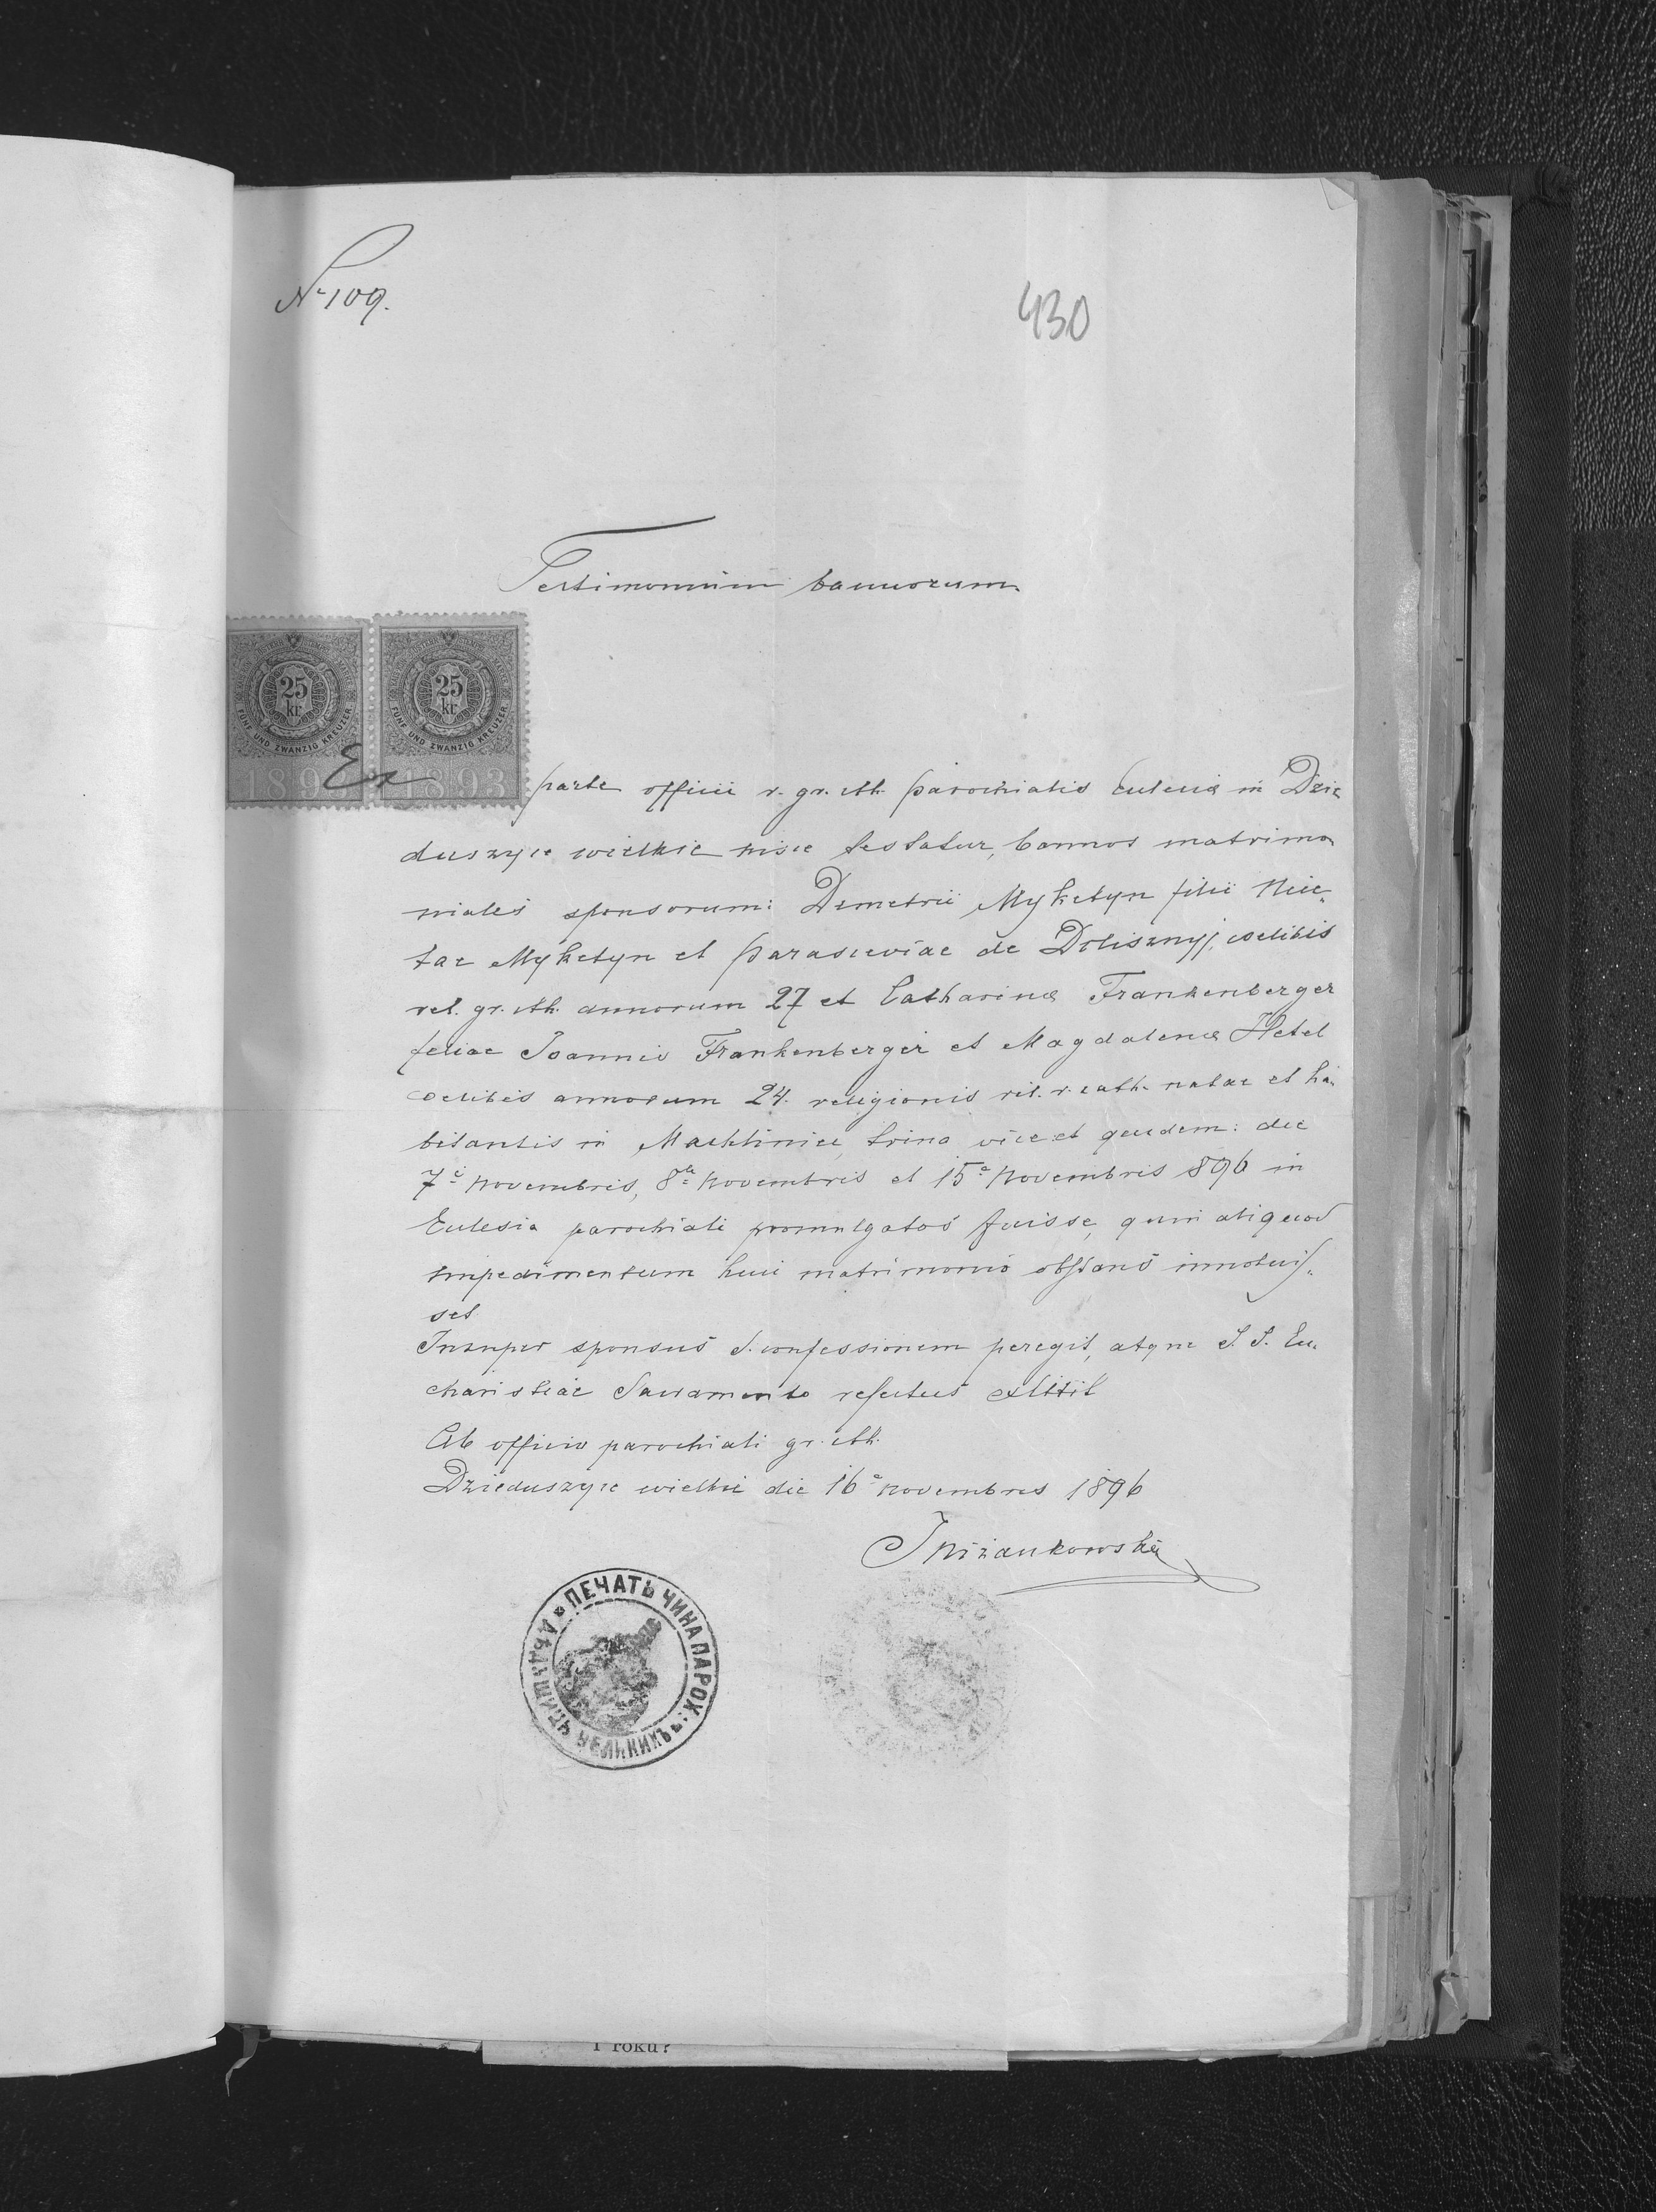 № 109.
430
Testimonium bannorum
25 kr 25 kr
FÜNF UND ZWANZIG KREUZER FÜNF UND ZWANZIG KREUZER
189 1893
Ex parte officii r. gr. cth. parochialis Eclesiæ in Dzie
duszyce wielkie hisce testatur, bannos matrimo
niales sponsorum: Demetrii Myketyn filii Nice
tae Myketyn et Parasceviae de Dolisznyj, coelibis
rel. gr. cth. annorum 27 et Catharinæ Frankenberger
filiae Joannis Frankenberger et Magdalenæ Hetel
coelibis annorum 24. religionis rit. r. cath. natae et ha
bitantis in Machliniec, trina vice et quidem: die
7ª Novembris, 8ª Novembris et 15ª Novembris 896 in
Eclesia parochiali promulgatos fuisse, quin aliquod
impedimentum huic matrimonio obstans innotuis
set
Insuper sponsus S. confessionem peregit, atque S. S. Eu
charistiae Sacramento refectus extitit
Ab officio parochiali gr. cth.
Dzieduszyce wielkie die 16ª Novembris 1896
J Niżankowski
ПЕЧАТЬ ЧИНА ПАРОХ:
1 roku?